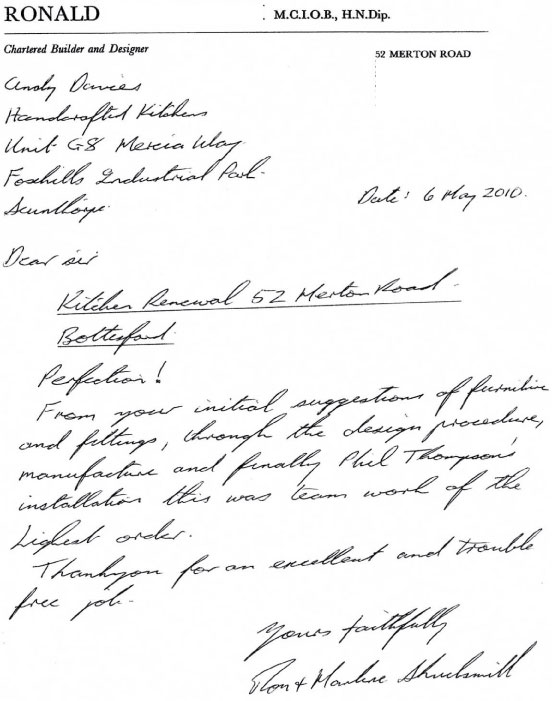 RONALD : M.C.I.O.B., H.N.Dip.
Chartered Builder and Designer
52 MERTON ROAD
Andy Davies
Handcrafted Kitchens
Unit G8 Mercia Way
Foxhills Industrial Park.
Scunthorpe.
Date: 6 May 2010.
Dear sir
Kitchen Renewal 52 Merton Road.
Bottesford.
Perfection!
From your initial suggestions of furniture
and fittings, through the design procedure,
manufacture and finally Phil Thompson's
installation this was team work of the
highest order.
Thankyou for an excellent and trouble
free job.
Yours faithfully
Ron + Marlene